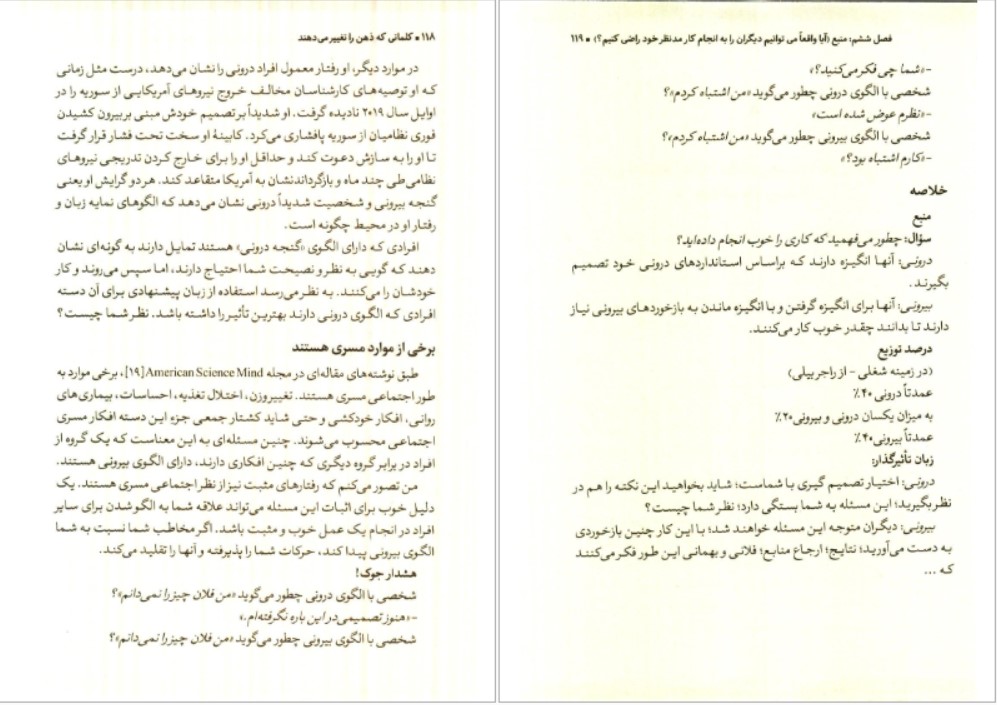 ۱۱۸ • کلماتی که ذهن را تغییر می‌دهند
در موارد دیگر، او رفتار معمول افراد درونی را نشان می‌دهد، درست مثل زمانی
که او توصیه‌های کارشناسان مخالف خروج نیروهای آمریکایی از سوریه را در
اوایل سال ۲۰۱۹ نادیده گرفت. او شدیداً بر تصمیم خودش مبنی بر بیرون کشیدن
فوری نظامیان از سوریه پافشاری می‌کرد. کابینهٔ او سخت تحت فشار قرار گرفت
تا او را به سازش دعوت کند و حداقل او را برای خارج کردن تدریجی نیروهای
نظامی طی چند ماه و بازگرداندنشان به آمریکا متقاعد کند. هر دو گرایش او یعنی
گنجه بیرونی و شخصیت شدیداً درونی نشان می‌دهد که الگوهای نمایه زبان و
رفتار او در محیط چگونه است.
افرادی که دارای الگوی «گنجه درونی» هستند تمایل دارند به گونه‌ای نشان
دهند که گویی به نظر و نصیحت شما احتیاج دارند، اما سپس می‌روند و کار
خودشان را می‌کنند. به نظر می‌رسد استفاده از زبان پیشنهادی برای آن دسته
افرادی که الگوی درونی دارند بهترین تأثیر را داشته باشد. نظر شما چیست؟
برخی از موارد مسری هستند
طبق نوشته‌های مقاله‌ای در مجله American Science Mind[۱۹]، برخی موارد به
طور اجتماعی مسری هستند. تغییر وزن، اختلال تغذیه، احساسات، بیماری‌های
روانی، افکار خودکشی و حتی شاید کشتار جمعی جزء این دسته افکار مسری
اجتماعی محسوب می‌شوند. چنین مسئله‌ای به این معناست که یک گروه از
افراد در برابر گروه دیگری که چنین افکاری دارند، دارای الگوی بیرونی هستند.
من تصور می‌کنم که رفتارهای مثبت نیز از نظر اجتماعی مسری هستند. یک
دلیل خوب برای اثبات این مسئله می‌تواند علاقه شما به الگو شدن برای سایر
افراد در انجام یک عمل خوب و مثبت باشد. اگر مخاطب شما نسبت به شما
الگوی بیرونی پیدا کند، حرکات شما را پذیرفته و آنها را تقلید می‌کند.
هشدار جوک!
شخصی با الگوی درونی چطور می‌گوید «من فلان چیز را نمی‌دانم»؟
-«هنوز تصمیمی در این باره نگرفته‌ام.»
شخصی با الگوی بیرونی چطور می‌گوید «من فلان چیز را نمی‌دانم»؟
فصل ششم: منبع (آیا واقعاً می توانیم دیگران را به انجام کار مدنظر خود راضی کنیم؟) • ۱۱۹
-«شما چی فکر می‌کنید؟»
شخصی با الگوی درونی چطور می‌گوید «من اشتباه کردم»؟
-«نظرم عوض شده است»
شخصی با الگوی بیرونی چطور می‌گوید «من اشتباه کردم»؟
-«کارم اشتباه بود؟»
خلاصه
منبع
سؤال: چطور می‌فهمید که کاری را خوب انجام داده‌اید؟
درونی: آنها انگیزه دارند که براساس استانداردهای درونی خود تصمیم
بگیرند.
بیرونی: آنها برای انگیزه گرفتن و با انگیزه ماندن به بازخوردهای بیرونی نیاز
دارند تا بدانند چقدر خوب کار می‌کنند.
درصد توزیع
(در زمینه شغلی - از راجر بیلی)
عمدتاً درونی ۴۰٪
به میزان یکسان درونی و بیرونی ۲۰٪
عمدتاً بیرونی ۴۰٪
زبان تأثیرگذار:
درونی: اختیار تصمیم گیری با شماست؛ شاید بخواهید این نکته را هم در
نظر بگیرید؛ این مسئله به شما بستگی دارد؛ نظر شما چیست؟
بیرونی: دیگران متوجه این مسئله خواهند شد؛ با این کار چنین بازخوردی
به دست می‌آورید؛ نتایج؛ ارجاع منابع؛ فلانی و بهمانی این طور فکر می‌کنند
که ...